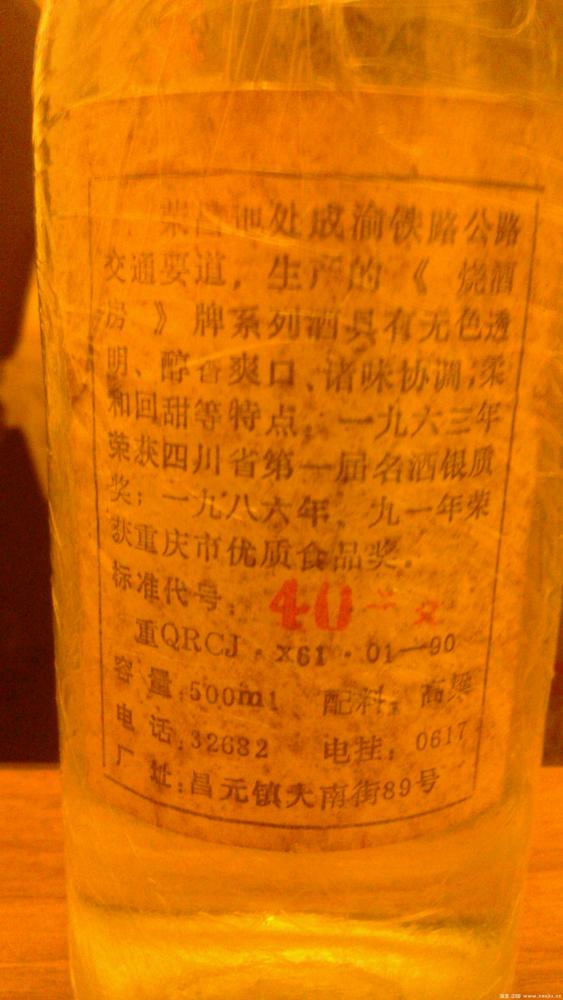 荣昌地处成渝铁路公路
交通要道，生产的《烧酒
房》牌系列酒具有无色透
明、醇香爽口、诸味协调，柔
和回甜等特点。一九六三年
荣获四川省第一届名酒银质
奖；一九八六年、九一年荣
获重庆市优质食品奖.
标准代号： 40
重QRCJ·X61·01—90
容量:500ml 配料：高粱
电话:32682 电挂：0617
厂址:昌元镇大南街89号